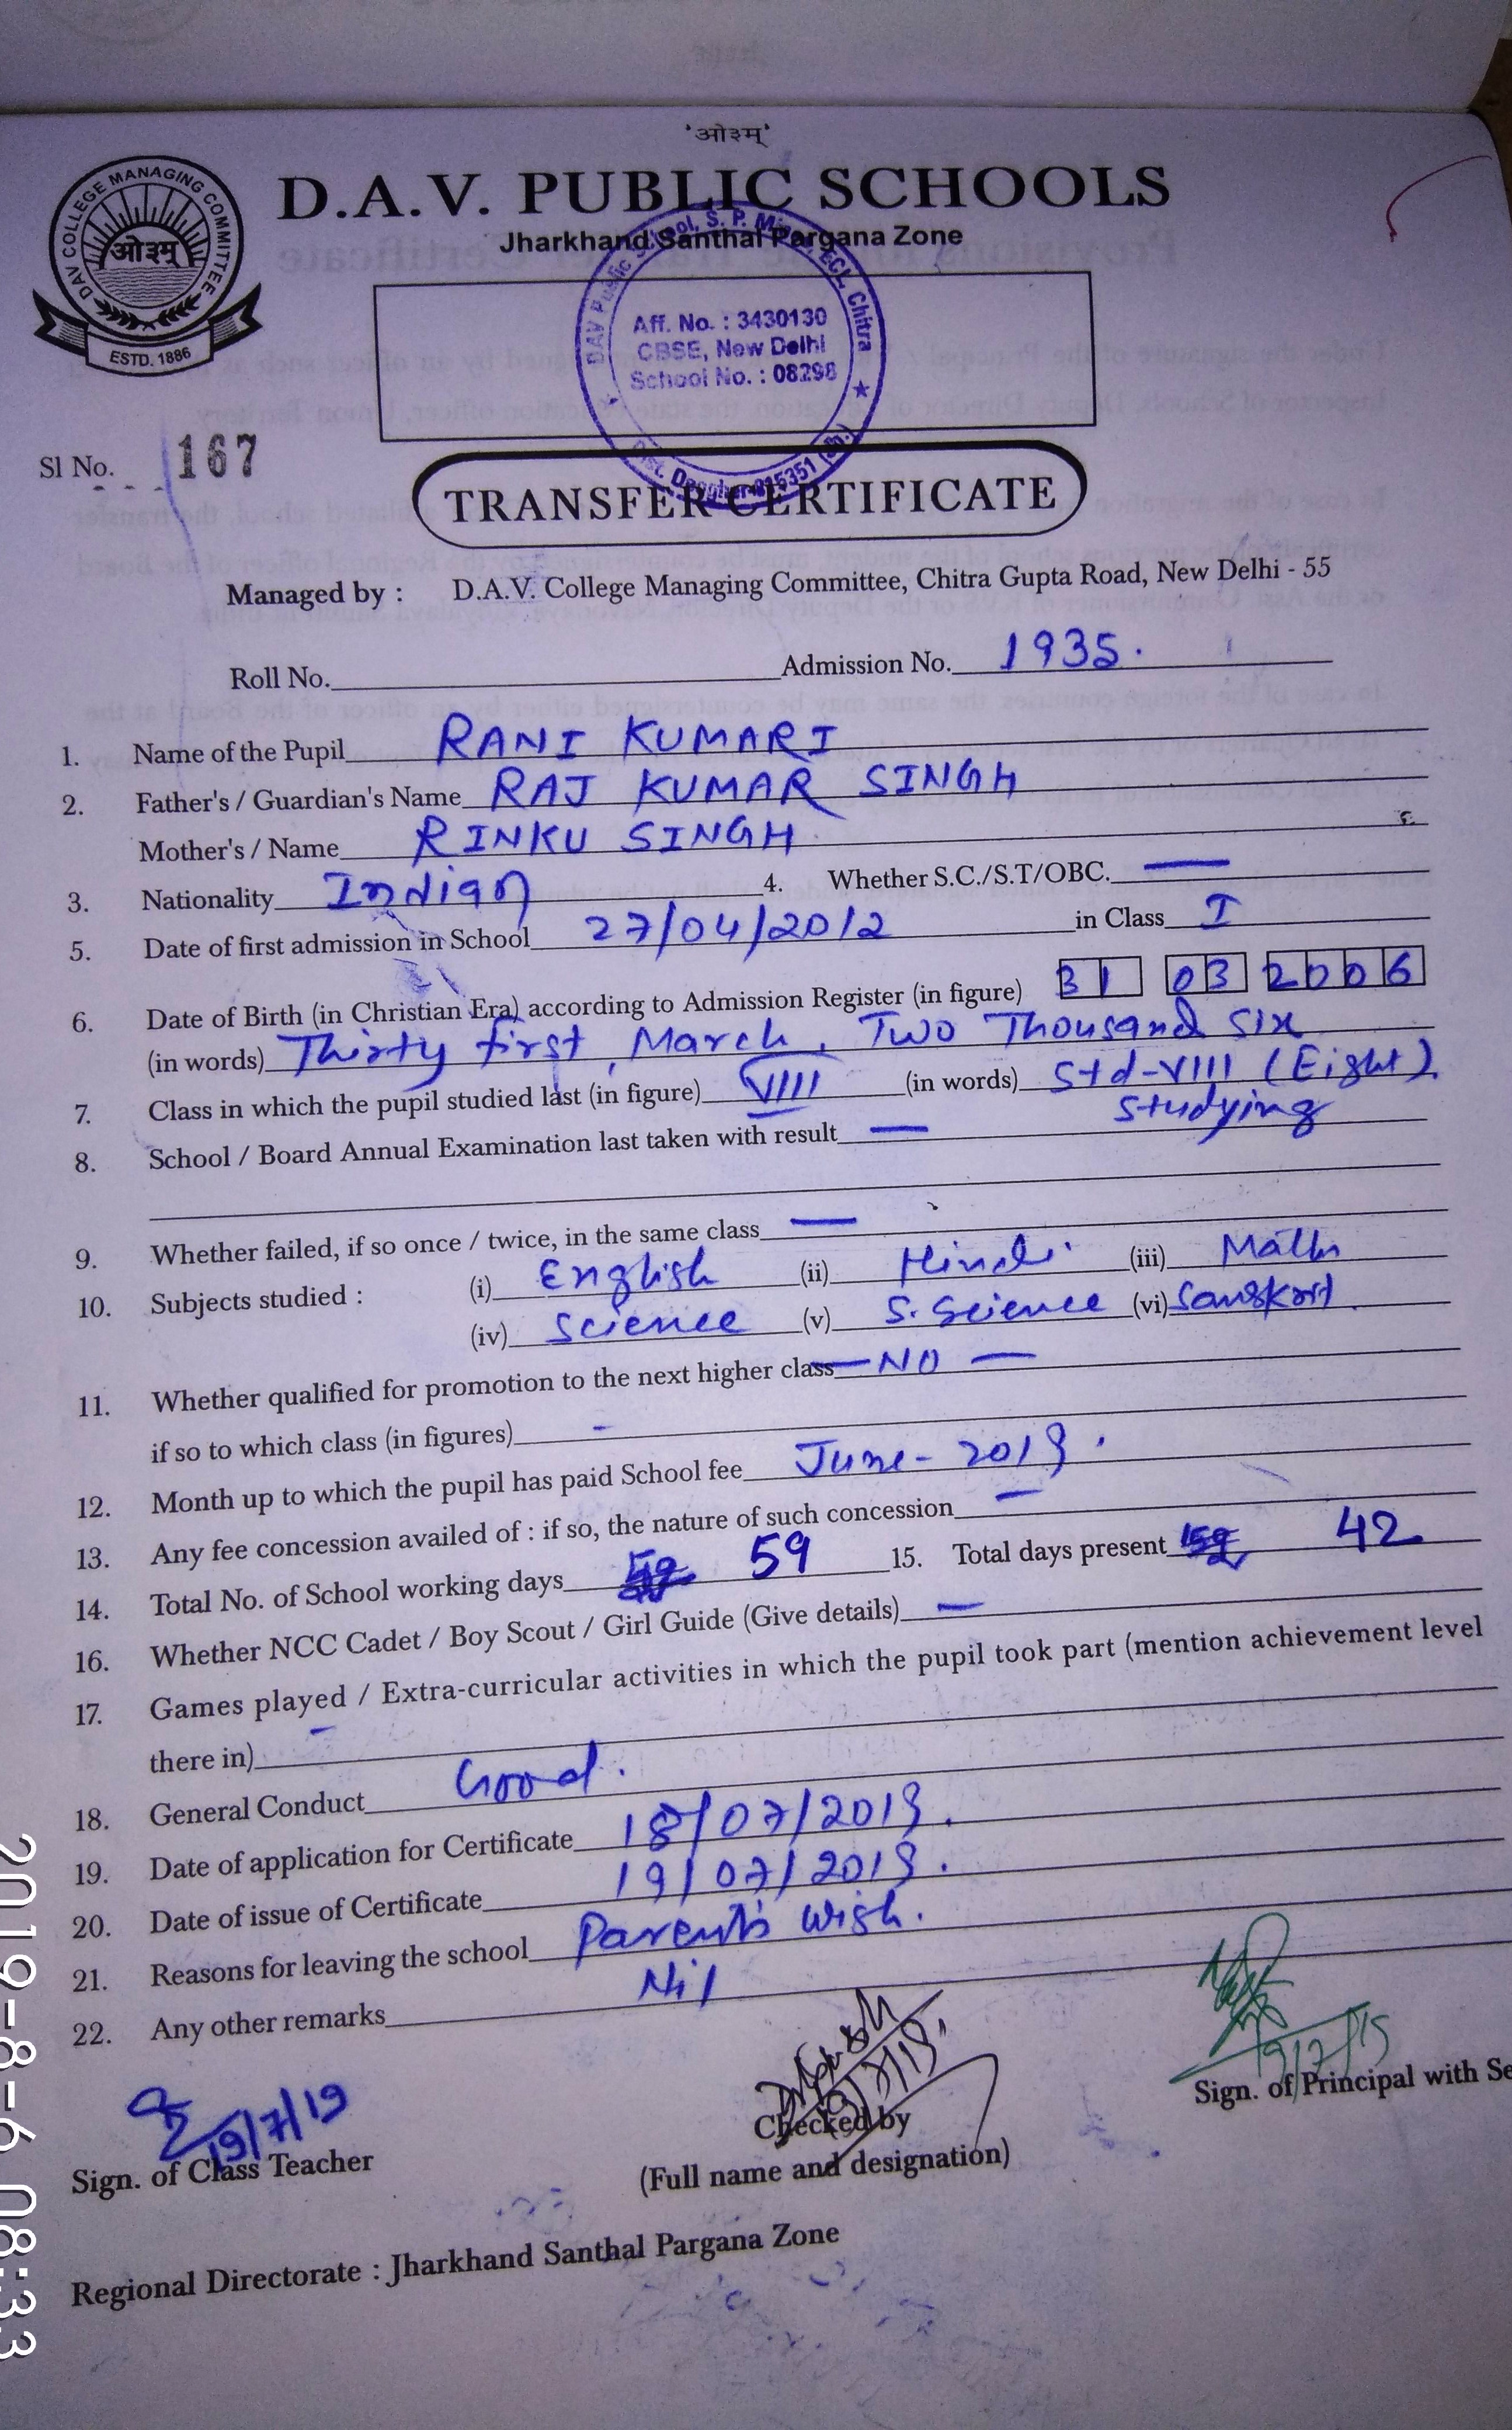 'ओ३म्'
D.A.V. PUBLIC SCHOOLS
Jharkhand Santhal Pargana Zone
DAV COLLEGE MANAGING COMMITTEE
ओ३म्
ESTD. 1886
DAV Public School, S. P. Mines, ECL, Chitra
Aff. No. : 3430130
CBSE, New Delhi
School No. : 08298
Dist. Deoghar-815351 (Jh.)
Sl No. 167
TRANSFER CERTIFICATE
Managed by : D.A.V. College Managing Committee, Chitra Gupta Road, New Delhi - 55
Roll No. Admission No. 1935.
1. Name of the Pupil RANI KUMARI
2. Father's / Guardian's Name RAJ KUMAR SINGH
Mother's / Name RINKU SINGH
3. Nationality Indian 4. Whether S.C./S.T/OBC. —
5. Date of first admission in School 27/04/2012 in Class I
6. Date of Birth (in Christian Era) according to Admission Register (in figure) 31 03 2006
(in words) Thirty first, March, Two Thousand six
7. Class in which the pupil studied last (in figure) VIII (in words) Std-VIII (Eight)
studying
8. School / Board Annual Examination last taken with result —
9. Whether failed, if so once / twice, in the same class —
10. Subjects studied : (i) English (ii) Hindi (iii) Math
(iv) Science (v) S. Science (vi) Sanskrit
11. Whether qualified for promotion to the next higher class — NO —
if so to which class (in figures) -
12. Month up to which the pupil has paid School fee June - 2019.
13. Any fee concession availed of : if so, the nature of such concession —
14. Total No. of School working days 59 15. Total days present 42
16. Whether NCC Cadet / Boy Scout / Girl Guide (Give details) —
17. Games played / Extra-curricular activities in which the pupil took part (mention achievement level
there in) -
18. General Conduct Good.
19. Date of application for Certificate 18/07/2019.
20. Date of issue of Certificate 19/07/2019.
21. Reasons for leaving the school Parent's wish.
22. Any other remarks Nil
19/7/19
Sign. of Class Teacher
Checked by
(Full name and designation)
Sign. of Principal with Se
Regional Directorate : Jharkhand Santhal Pargana Zone
2019-8-6 08:33